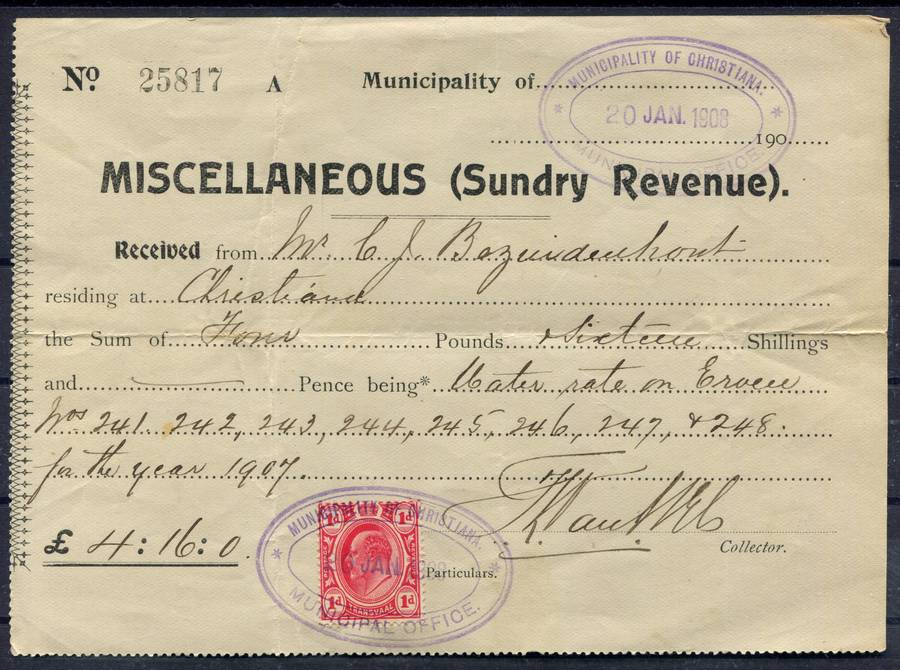 No. 25817 A Municipality of
MUNICIPALITY OF CHRISTIANA.
20 JAN. 1908
MUNICIPAL OFFICE.
190
MISCELLANEOUS (Sundry Revenue).
Received from Mr. C J. Bezuidenhout
residing at Christiana
the Sum of Four Pounds & Sixteen Shillings
and Pence being* Water rate on Erven
Nos 241 242, 243, 244, 245, 246, 247, & 248.
for the year 1907.
£ 4:16:0.
Collector.
MUNICIPALITY OF CHRISTIANA.
JAN
1d 1d
*Particulars.
1d TRANSVAAL 1d
MUNICIPAL OFFICE.